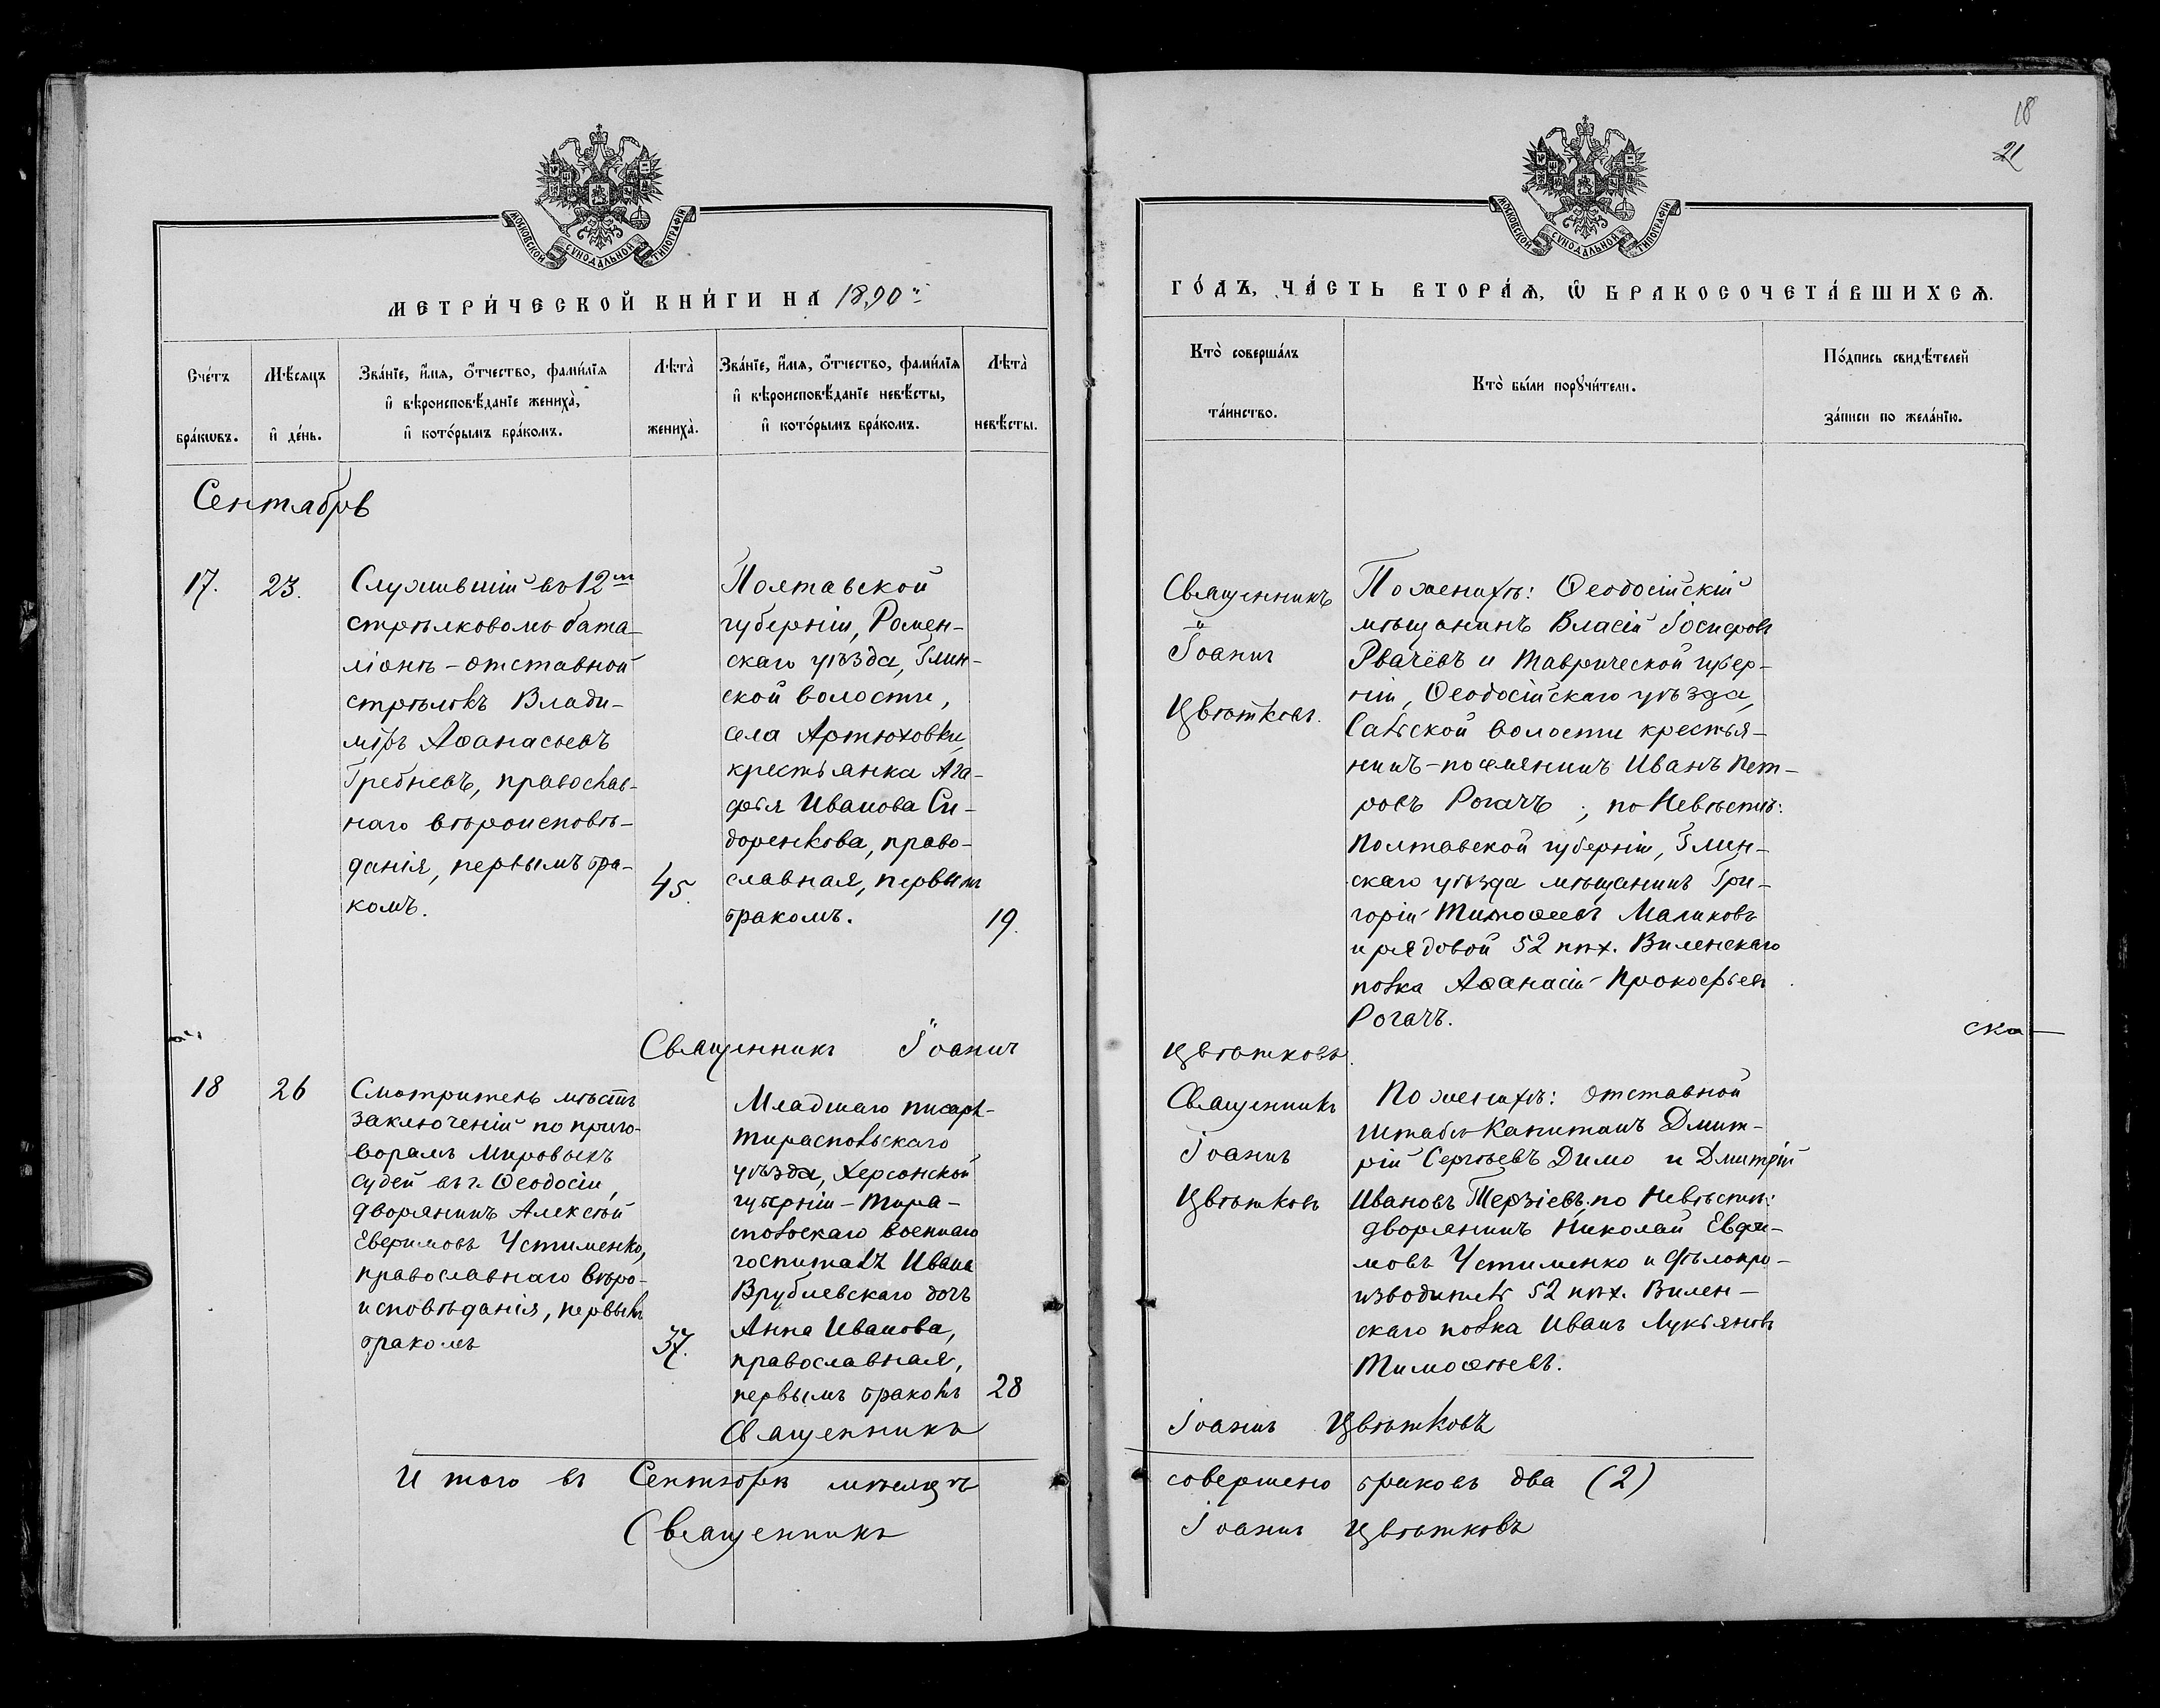 18
21
МОСКОВСКОЙ СѴНОДАЛЬНОЙ ТИПОГРАФІИ
МОСКОВСКОЙ СѴНОДАЛЬНОЙ ТИПОГРАФІИ
МЕТРИ́ЧЕСКОЙ КНИ́ГИ НА 1890й
ГО́ДЪ, ЧА́СТЬ ВТОРА́Ѧ, Ѽ БРАКОСОЧЕТА́ВШИХСѦ.
Сче́тъ
бра́кѡвъ.
Мѣ́сяцъ
и҆ де́нь.
Зва́нїе, и҆́мѧ, ѻ҆́тчество, фами́лїѧ
и҆ вѣроисповѣ́данїе жениха̀,
и҆ кото́рымъ бра́комъ.
Лѣта̀
жениха̀.
Зва́нїе, и҆́мѧ, ѻ҆́тчество, фами́лїѧ
и҆ вѣроисповѣ́данїе невѣ́сты,
и҆ кото́рымъ бра́комъ.
Лѣта̀
невѣ́сты.
Кто̀ соверша́лъ
та́инство.
Кто̀ бы́ли порꙋчи́тели.
По́дпись свидѣ́телей
за́писи по жела́нїю.
Сентябрь
17.
23.
Служившій въ 12м
стрѣлковомъ бата-
ліонѣ - отставной
стрѣлокъ Влади-
міръ Аѳанасьевъ
Гребневъ, православ-
наго вѣроисповѣ-
данія, первымъ бра-
комъ.
45.
Полтавской
губерніи, Ромен-
скаго уѣзда, Глин-
ской волости,
села Артюховки
крестьянка Ага-
фья Иванова Си-
доренкова, право-
славная, первымъ
бракомъ.
19.
Священникъ
Іоаннъ
Цвѣтковъ.
По женихѣ: Ѳеодосійскій
мѣщанинъ Власій Іосифовъ
Рвачевъ и Таврической губер-
ніи, Ѳеодосійскаго уѣзда,
Сальской волости крестья-
нинъ-поселянинъ Иванъ Пет-
ровъ Рогачъ; по Невѣстѣ:
Полтавской губерніи, Глин-
скаго уѣзда мѣщанинъ Гри-
горій Тимоѳеевъ Маликовъ
и рядовой 52 пѣх. Виленскаго
полка Аѳанасій Прокофьевъ
Рогачъ.
Священникъ Іоаннъ
Цвѣтковъ.
ска—
18
26
Смотритель мѣстъ
заключеній по приго-
ворамъ Мировыхъ
судей въ г. Ѳеодосіи,
дворянинъ Алексѣй
Евфимовъ Устименко,
православнаго вѣро-
исповѣданія, первымъ
бракомъ
37.
Младшаго писаря
Тираспольскаго
уѣзда, Херсонской
губерніи - Тира-
спольскаго военнаго
госпиталя Ивана
Врублевскаго дочь
Анна Иванова,
православная,
первымъ бракомъ
28
Священникъ
Іоаннъ
Цвѣтковъ
По женихѣ: отставной
Штабсъ-Капитанъ Дмит-
рій Сергѣевъ Димо и Дмитрій
Ивановъ Терзіевъ. по Невѣстѣ:
дворянинъ Николай Евфи-
мовъ Устименко и дѣлопро-
изводитель 52 пѣх. Вилен-
скаго полка Иванъ Лукьяновъ
Тимоѳѣевъ.
Священникъ
Іоаннъ Цвѣтковъ
Итого въ Сентябрѣ мѣсяцѣ
совершено браковъ два (2)
Священникъ
Іоаннъ Цвѣтковъ